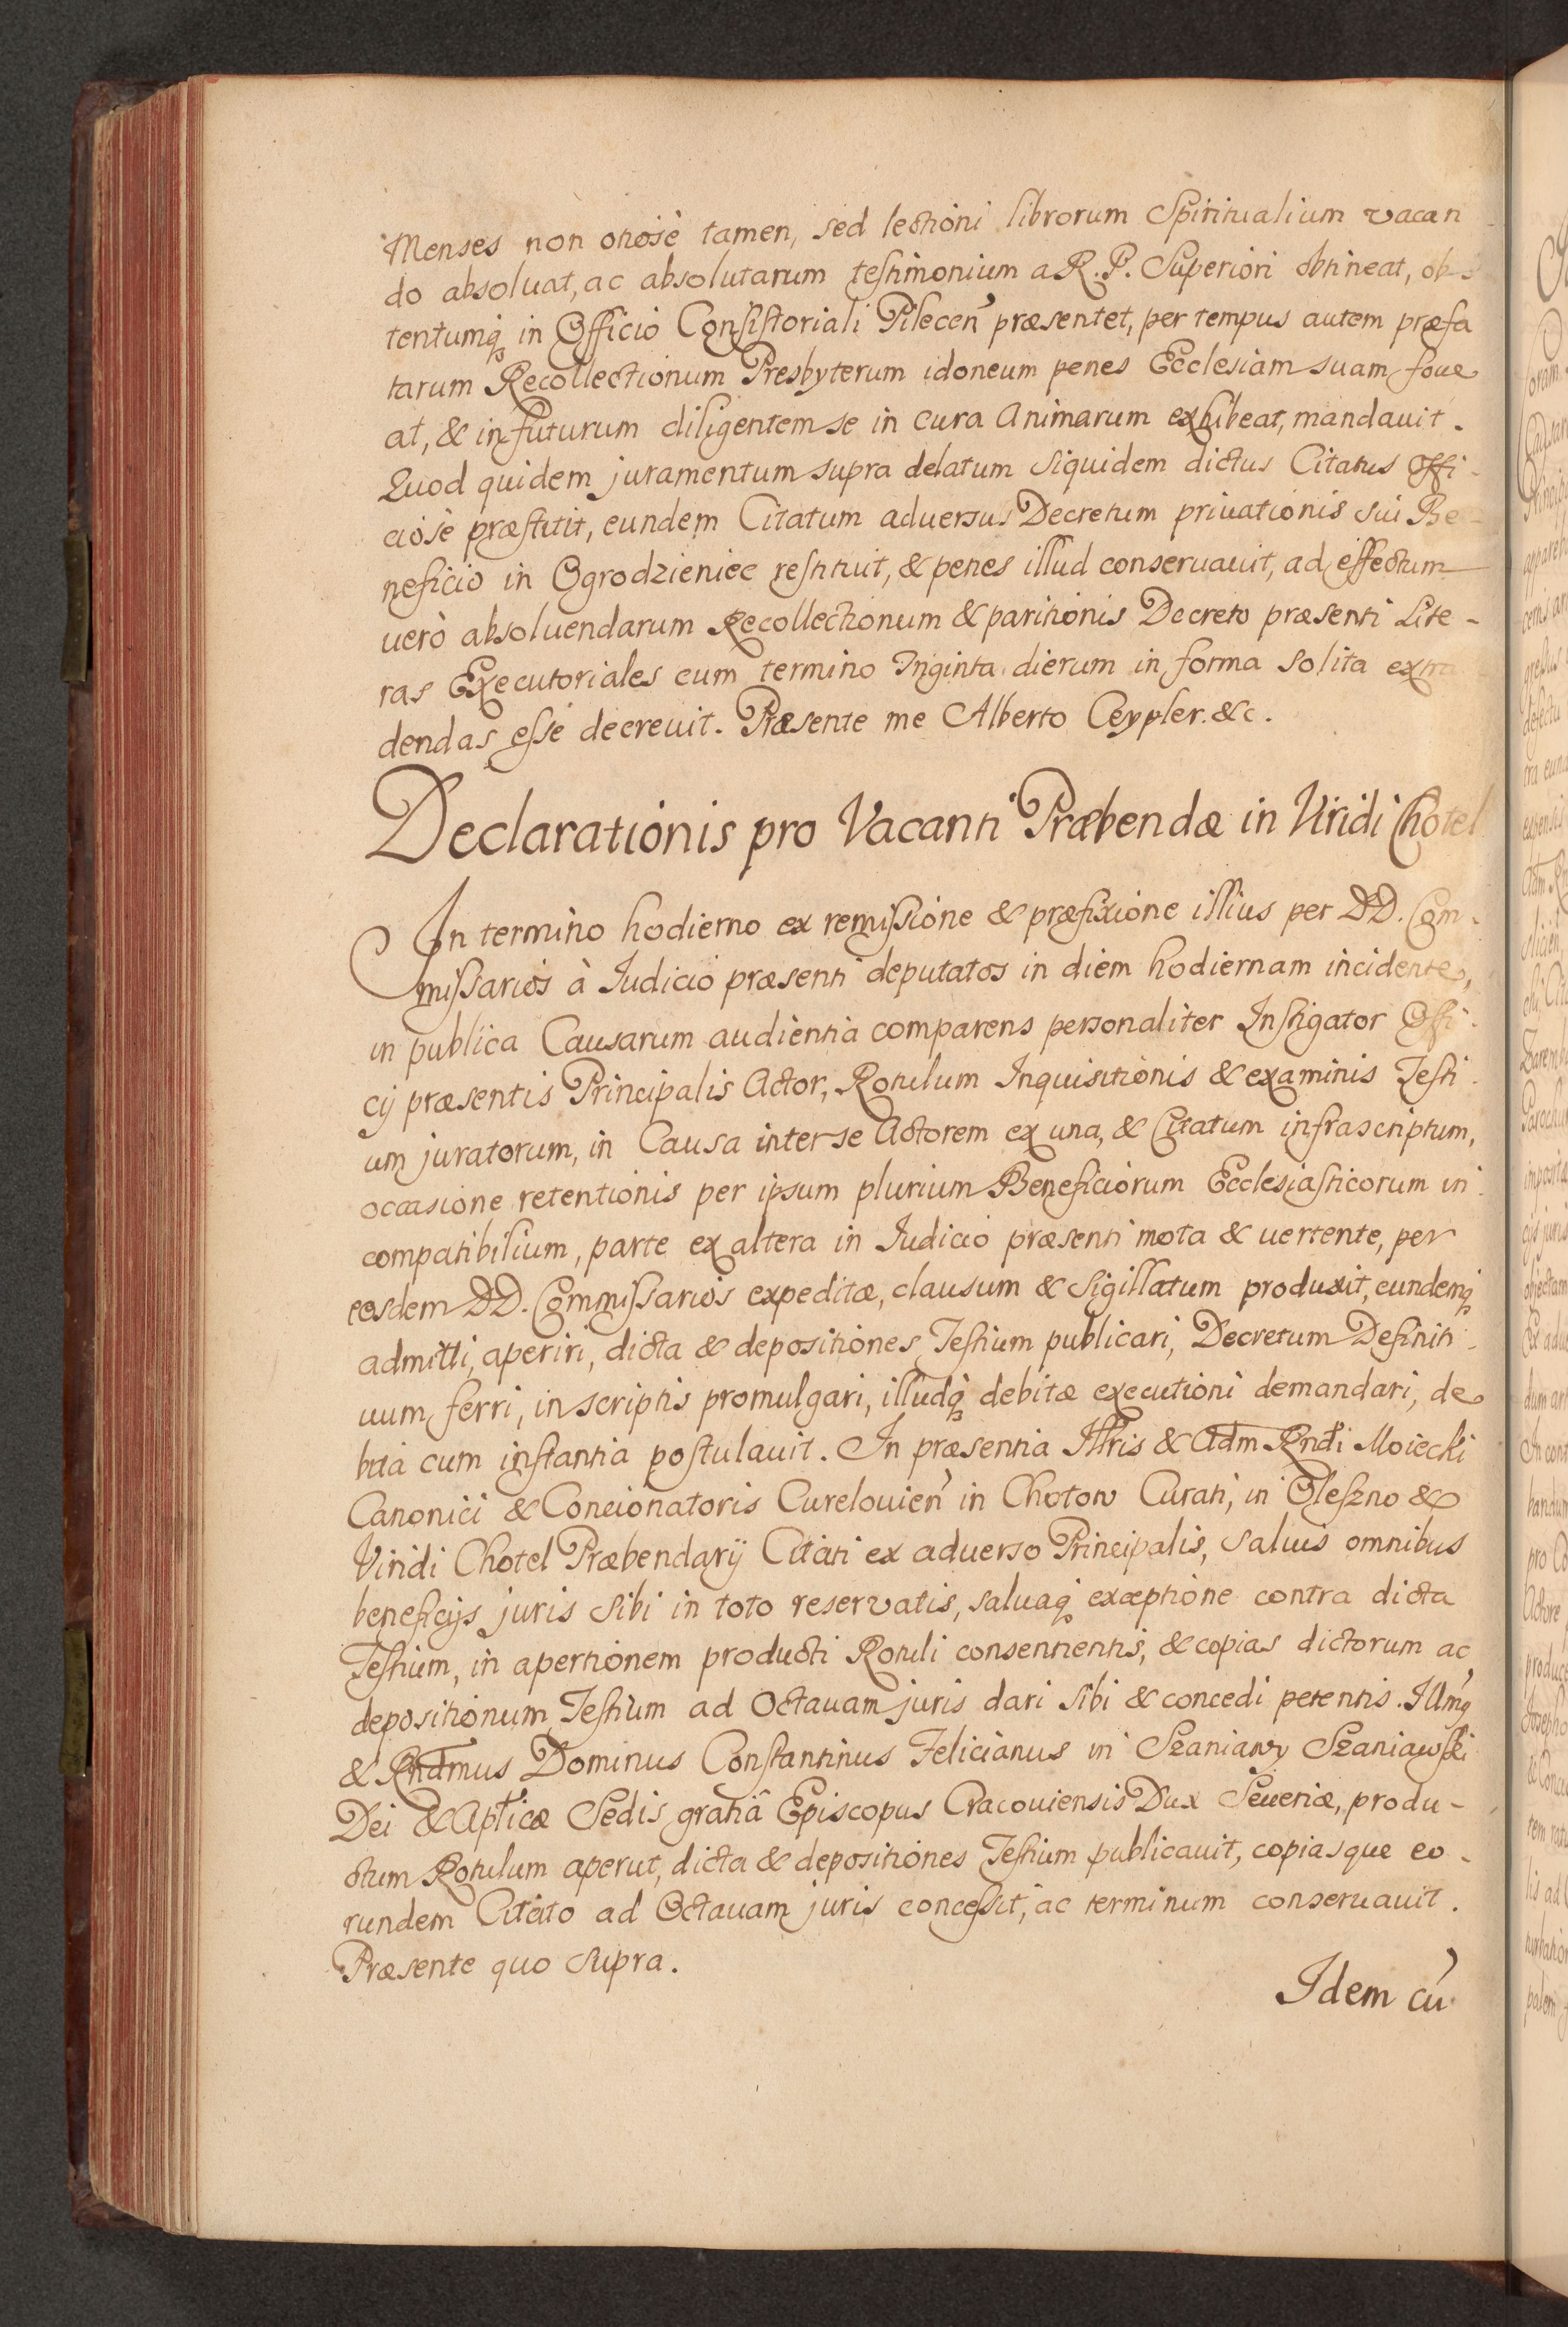 Menses non otiosè tamen, sed lectioni librorum Spiritualium vacan
do absoluat, ac absolutarum testimonium a R. P. Superiori obtineat, ob-
tentumq; in Officio Consistoriali Pilecen̉ præsentet, per tempus autem præfa
tarum Recollectionum Presbyterum idoneum penes Ecclesiam suam foue
at, & in futurum diligentem se in cura Animarum exhibeat, mandauit.
Quod quidem juramentum supra delatum siquidem dictus Citatus Offi-
ciosè præstitit, eundem Citatum aduersus Decretum priuationis sui Be-
neficio in Ogrodzieniec restituit, & penes illud conseruauit, ad effectum
uerò absoluendarum Recollectionum & paritionis Decreto præsenti Lite-
ras Executoriales cum termino Triginta dierum in forma solita extra
dendas esse decreuit. Præsente me Alberto Ceypler. &c.
Declarationis pro Vacanti Præbendæ in Viridi Chotel
In termino hodierno ex remissione & præfixione illius per DD. Com-
missarios à Iudicio præsenti deputatos in diem hodiernam incidente,
in publica Causarum audientia comparens personaliter Instigator Offi-
cij præsentis Principalis Actor, Rotulum Inquisitionis & examinis Testi-
um juratorum, in Causa inter se Actorem ex una, & Citatum infrascriptum,
occasione retentionis per ipsum plurium Beneficiorum Ecclesiasticorum in-
compatibilium, parte ex altera in Iudicio præsenti mota & uertente, per
eosdem DD. Commissarios expeditæ, clausum & sigillatum produxit, eundemq;
admitti, aperiri, dicta & depositiones Testium publicari, Decretum Definiti-
uum ferri, in scriptis promulgari, illudq; debitæ executioni demandari, de
bita cum instantia postulauit. In præsentia Illtris & Adm Rndi Moiecki
Canonici & Concionatoris Curelouien̉ in Chotow Curati, in Oleszno &
Viridi Chotel Præbendarij Citati ex aduerso Principalis, saluis omnibus
beneficijs juris sibi in toto reservatis, saluaq; exceptione contra dicta
Testium, in apertionem producti Rotuli consentientis, & copias dictorum ac
depositionum Testium ad Octauam juris dari sibi & concedi petentis. Illm̉q
& Rndmus Dominus Constantinus Felicianus in Szaniawy Szaniawski
Dei & Aplicæ Sedis gratiâ Episcopus Cracouiensis Dux Seueriæ, produ-
ctum Rotulum aperut, dicta & depositiones Testium publicauit, copiasque eo-
rundem Citato ad Octauam juris concessit, ac terminum conseruauit.
Præsente quo supra.
Idem cu̓